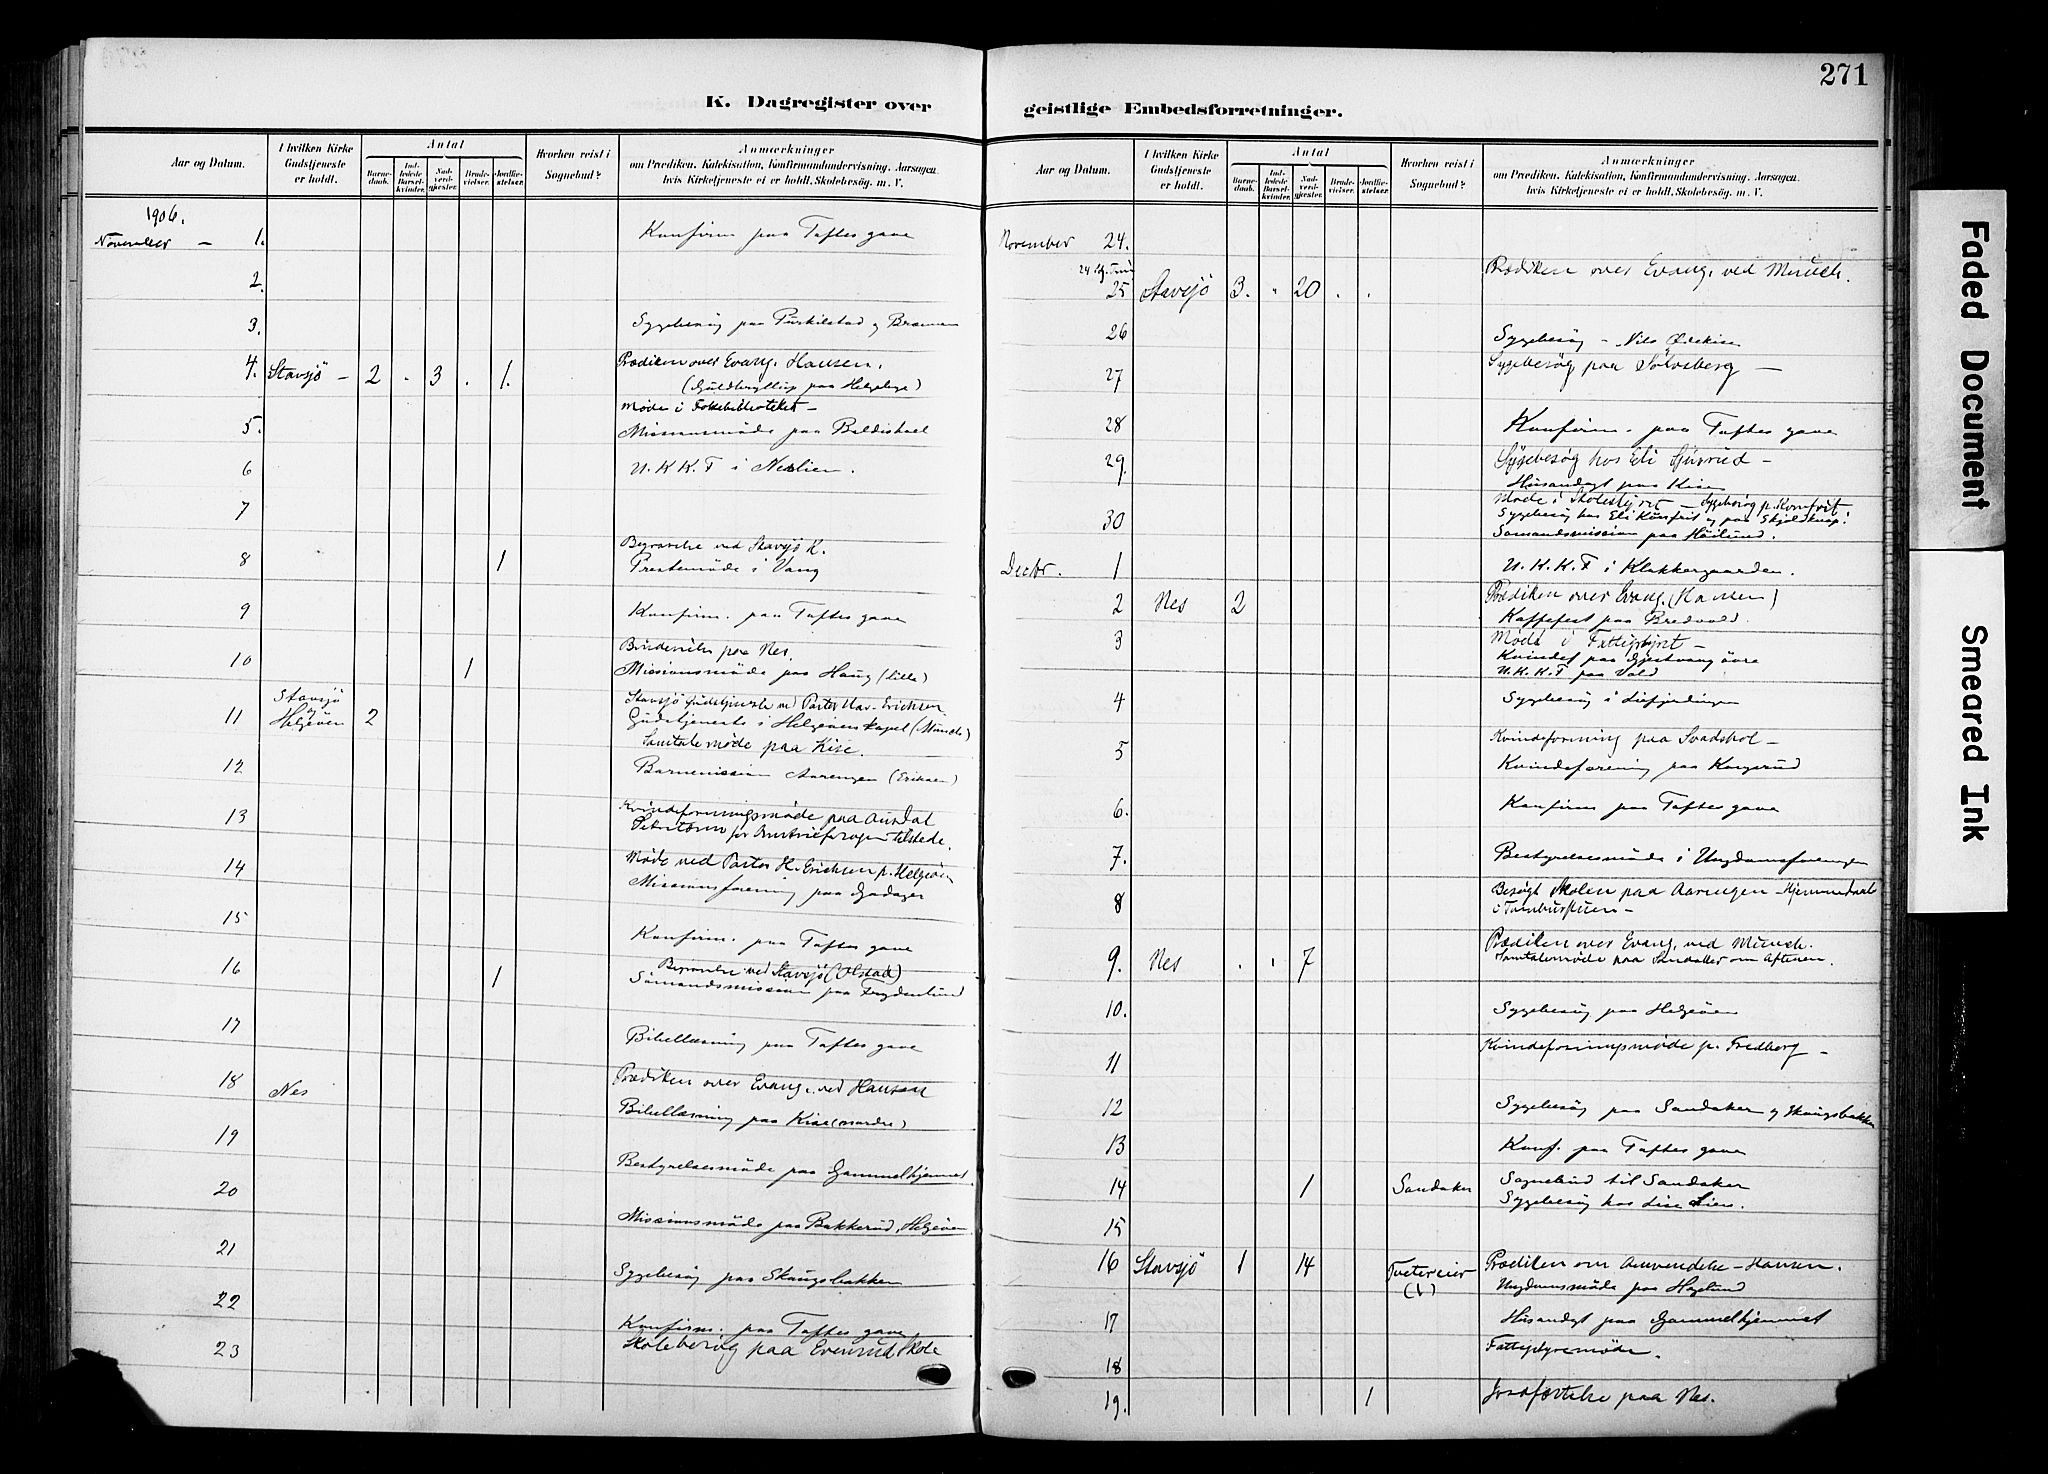 271
K. Dagregister over
Aar og Datum.
I hvilken Kirke Gudstjeneste er holdt.
Antal
Barnedaab.
Indledede Barselkvinder.
Nadverdgjester.
Brudevielser.
Jordfæstelser.
Hvorhen reist i Sognebud?
Anmærkninger
om Prædiken, Katekisation, Konfirmandundervisning, Aarsagen,
hvis Kirketjeneste ei er holdt, Skolebesøg, m. V.
1906.
November — 1. Konfirm paa Toftes gave
2.
3. Sygebesøg paa Purkilstad og Bræmen
4. Stavsjö — 2 " 3 . 1. Prædiken over Evang. Hansen.
(Guldbryllup paa Helgelye)
Møde i Folkebibliotheket —
5. Missionsmøde paa Baldishoel
6 U.K.K.F i Neslien.
7
8 1 Begravelse ved Stavsjö K.
Prestemøde i Vang
9 Konfirm. paa Toftes gave
10 1 Brudevielse paa Nes.
Missionsmøde paa Haug (Lille)
11 Stavsjö og Helgøen 2 Stavsjö Gudstjeneste ved Pastor Erichsen
Gudstjeneste i Helgøens kapel (Münch)
Samtalemøde paa Kise.
12 Barnemission Aarengen (Eriksen)
13 Kvindeforeningsmøde paa
tilstede.
14 Møde ved Pastor H. Erichsen p. Helgøen
Missionsforening paa Gjødager
15 Konfirm. paa Toftes gave
16 1 Begravelse ved Stavsjö (Ulstad)
Sömandsmission paa Frydenlund
17 Bibellæsning paa Toftes gave
18 Nes Prædiken over Evang. ved Hansen
Bibellæsning paa Kise (nordre)
19
Bestyrelsesmøde paa Gammelhjemmet.
20
Missionsmøde paa Bakkerud, Helgøen
21
Sygebesøg paa Skaugsbakken
22
Konfirm. paa Toftes gave
23 Skolebesøg paa Evenrud Skole
geistlige Embedsforretninger.
Aar og Datum.
I hvilken Kirke Gudstjeneste er holdt.
Antal
Barnedaab.
Indledede Barselkvinder.
Nadverdgjester.
Brudevielser.
Jordfæstelser.
Hvorhen reist i Sognebud?
Anmærkninger
om Prædiken, Katekisation, Konfirmandundervisning, Aarsagen,
hvis Kirketjeneste ei er holdt, Skolebesøg, m. V.
November 24.
24 S. Trin
25 Stavsjö 3. " 20 . . Prædiken over Evang. ved Münch.
26 Sygebesøg — Nils Ødekisen
27 Sygebesøg paa Sölvsberg —
28 Konfirm. paa Toftes gave
29. Sygebesøg hos Eli Sjurud —
Husandagt paa Kise
30 Møde i Skolestyret — Sygebesøg p. Komfort.
Sygebesøg hos Eli og paa Skjoldknap.
Sömandsmission paa Höilund.
Decbr. 1 U.K.K.F i Klokkergaarden.
2 Nes 2 Prædiken over Evang. (Hansen)
Kaffefest paa Bredvold.
3 Møde i Fattigstyret —
Kvindef paa Gjestvang øvre
U.K.K.F paa Vold
4 Sygebesøg i
5 Kvindeforening paa Svadshol —
Kvindeforening paa Korperud
6. Konfirm paa Toftes gave
7. Bestyrelsesmøde i Ungdomsforeningen
8 Besøgt Skolen paa Aarengen — Hjemmedaab
i —
9. Nes . " 7 Prædiken over Evang. ved Münch.
Samtalemøde paa Sandaker om Aftenen.
10. Sygebesøg paa Helgøen
11 Kvindeforeningsmøde p. Fredberg —
12 Sygebesøg paa Sandaker og Skaugsbakken
13 Konf. paa Toftes gave
14 1 Sandaker Sognebud til Sandaker
Sygebesøg hos Lise Lien.
15
16 Stavsjö 1 14 Tvetereier (1) Prædiken om Omvendelse — Hansen.
Ungdomsmøde paa Høgelund
17 Husandagt paa Gammelhjemmet
18 Fattigstyremøde.
19. 1 Jordfæstelse paa Nes.
Faded Document
Smeared Ink